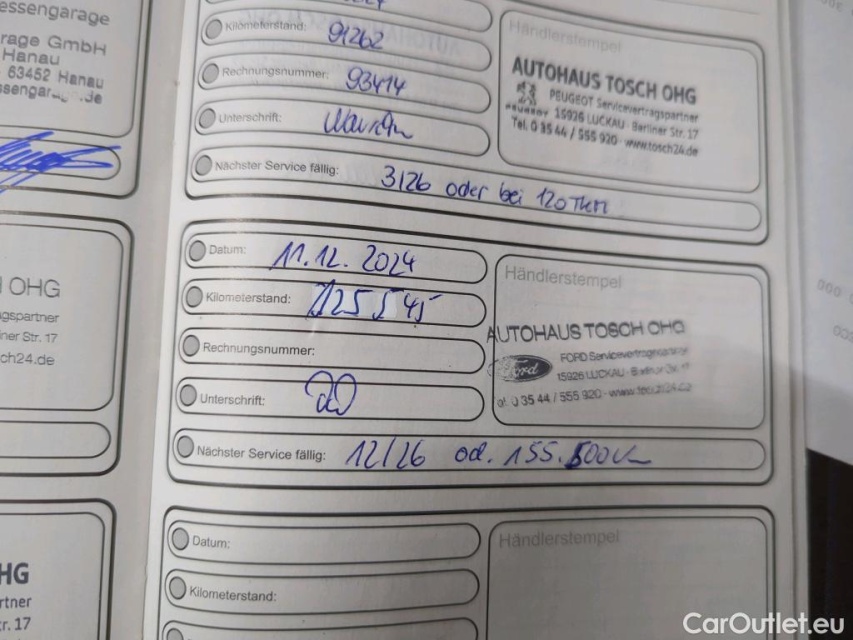 essengarage
rage GmbH
Hanau
63452 Hanau
OHG
gspartner
ner Str. 17
sch24.de
HG
rtner
r. 17
Kilometerstand: 91262
Rechnungsnummer: 93414
Unterschrift:
Nächster Service fällig: 3/26 oder bei 120 TKM
Händlerstempel
AUTOHAUS TOSCH OHG
PEUGEOT Servicevertragspartner
PEUGEOT 15926 LUCKAU · Berliner Str. 17
Tel. 0 35 44 / 555 920 · www.tosch24.de
Datum: 11.12.2024
Kilometerstand: 125545
Rechnungsnummer:
Unterschrift:
Nächster Service fällig: 12/26 od. 155.500
Händlerstempel
AUTOHAUS TOSCH OHG
Ford
FORD Servicevertragspartner
15926 LUCKAU · Berliner Str. 17
Tel. 0 35 44 / 555 920 · www.tosch24.de
Datum:
Kilometerstand:
Händlerstempel
CarOutlet.eu